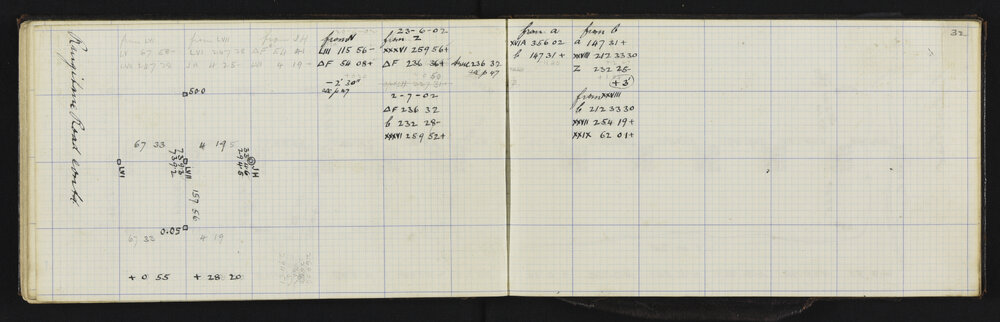 32
Rangihana Road contd
from LVI
LV 67 68-
LVII 247 38
from LVII
LVI 247 38
JH 4 25-
from JH
ΔF 54 41
LVII 4 19-
from H
LIII 115 56-
ΔF 54 08+
-2' 30"
see p 47
23-6-02
from Z
XXXVI 259 56+
ΔF 236 36+
true 236 32
see p 47
2-7-02
ΔF 236 32
b 232 28-
XXXVI 259 52+
from a
XVIA 356 02
b 147 31+
from b
a 147 31+
XXVIII 212 33 30
Z 232 25
+3'
from XXVIII
b 212 33 30
XXVII 254 19+
XXIX 62 01+
500
67 33
4 19 5
LVI
LVII
7393
7392
JH
3346
2945
157 56
0.05
67 32
4 19
+ 0 55
+ 28 20